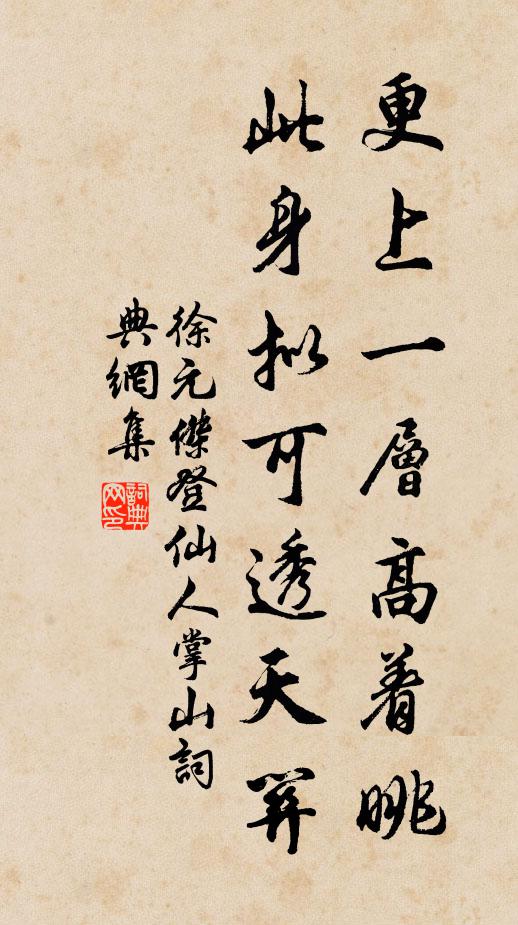 更上一層高着眺
此身拟可透天關
徐元傑登仙人掌山詞
典網集
詞典
网印